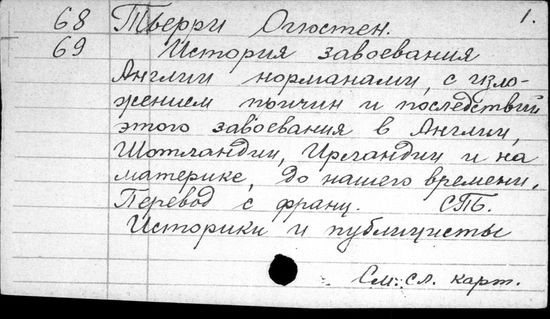 68 Тьерри Огюстен. 1.
69 История завоевания
Англии норманами, с изло-
жением причин и последствий
этого завоевания в Англии,
Шотландии, Ирландии и на
материке, до нашего времени.
Перевод с франц. СПБ.
Историки и публицисты
См. сл. карт.